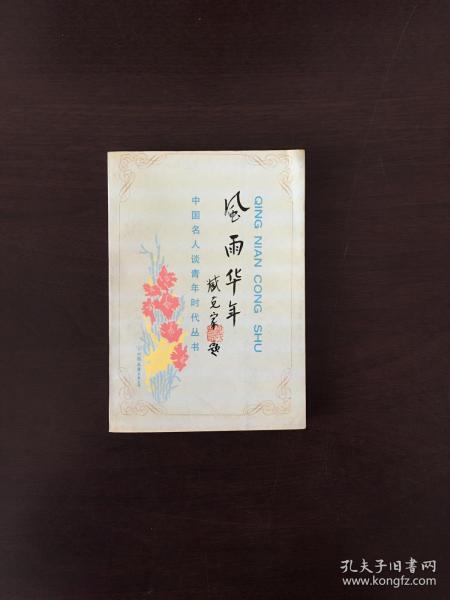 QING NIAN CONG SHU
風雨华年
臧克家題
中国名人谈青年时代丛书
孔夫子旧书网
www.kongfz.com